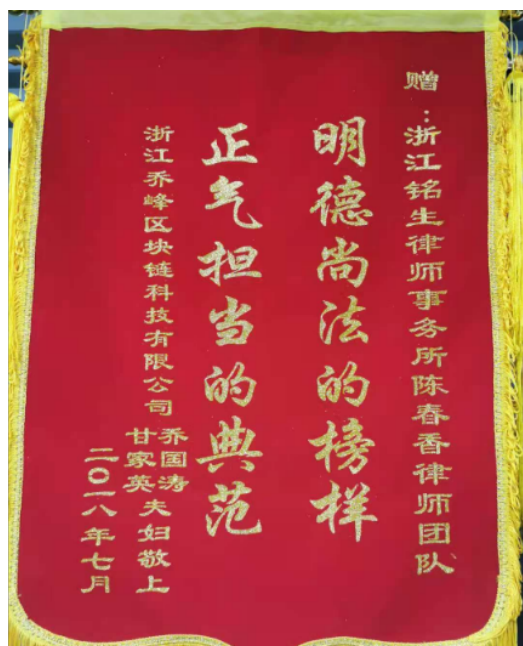 赠：浙江铭生律师事务所陈春香律师团队
明德尚法的榜样
正气担当的典范
浙江乔峰区块链科技有限公司
乔国涛
甘家英夫妇敬上
二〇一八年七月